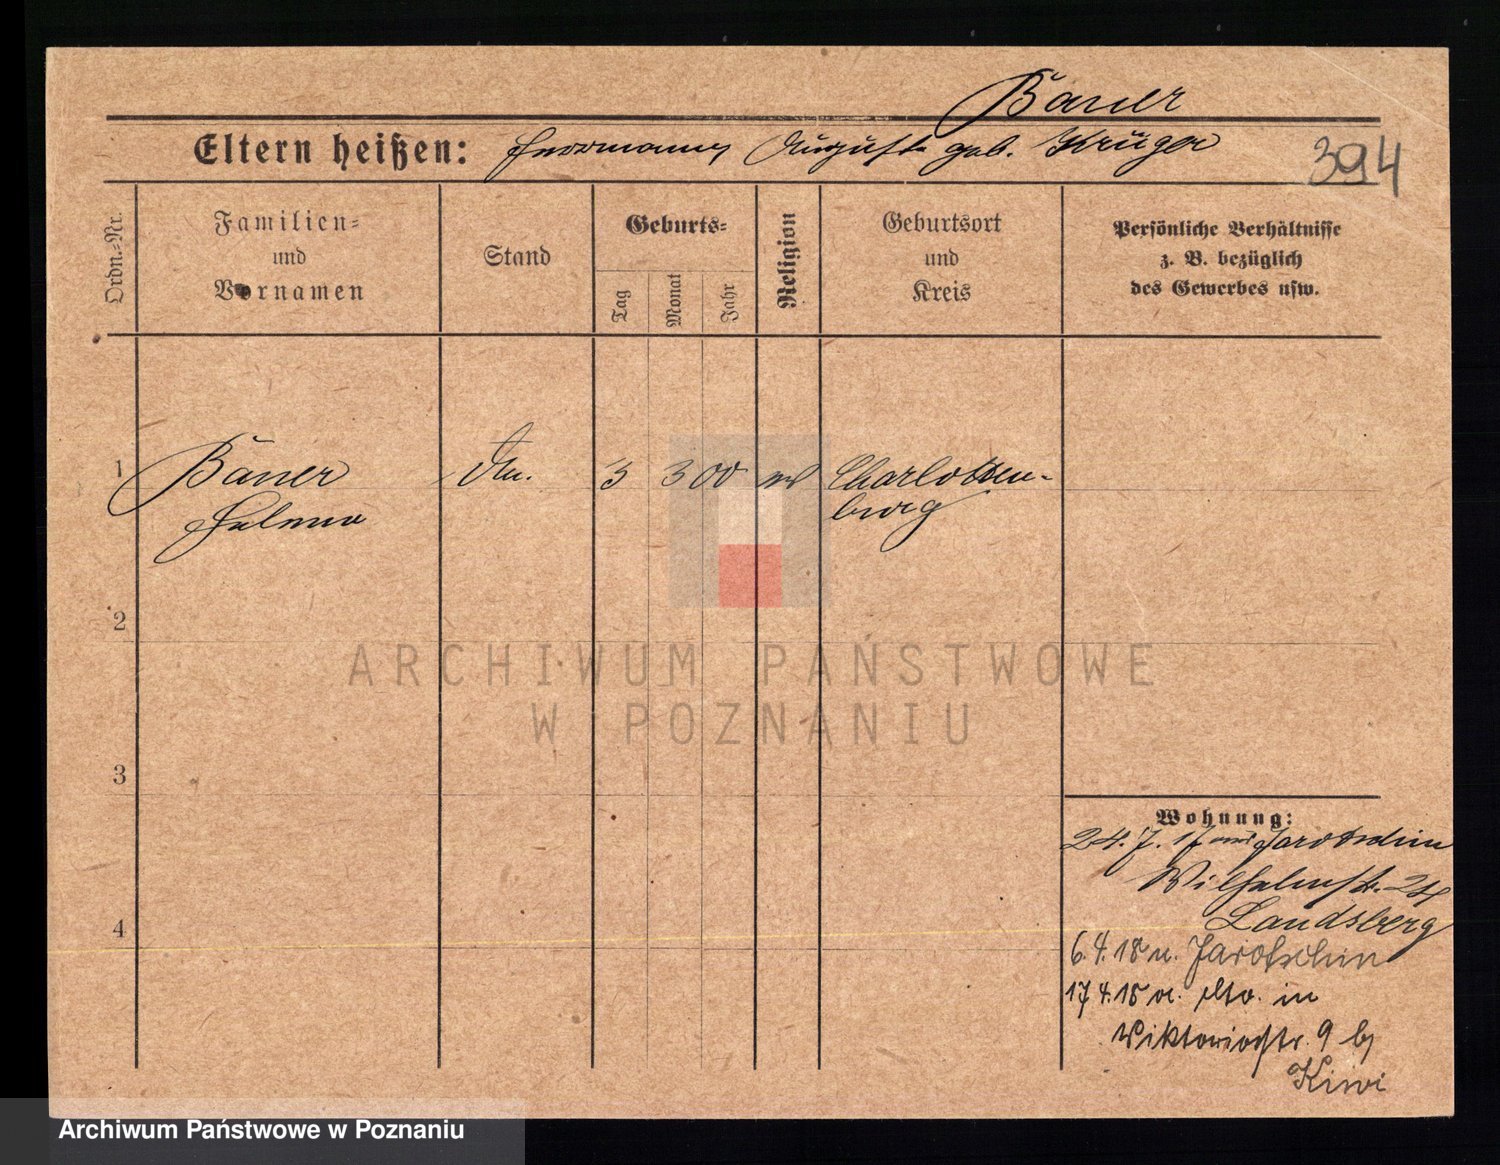 Bauer
Eltern heißen: Herrmann, Auguste geb. Krüger
394
Ordn.=Nr.
Familien=
und
Vornamen
Stand
Geburts=
Tag
Monat
Jahr
Religion
Geburtsort
und
Kreis
Persönliche Verhältnisse
z. B. bezüglich
des Gewerbes usw.
1 Bauer 3 3 00 Charlotten-
burg
2
3
4
Wohnung:
24.7.17 aus Jarotschin
Wilhelmstr. 24
Landsberg
6.4.18 n. Jarotschin
17.4.18 v. dto. in
Viktoriastr. 9 b/
Kiwi
ARCHIWUM PAŃSTWOWE
W POZNANIU
Archiwum Państwowe w Poznaniu